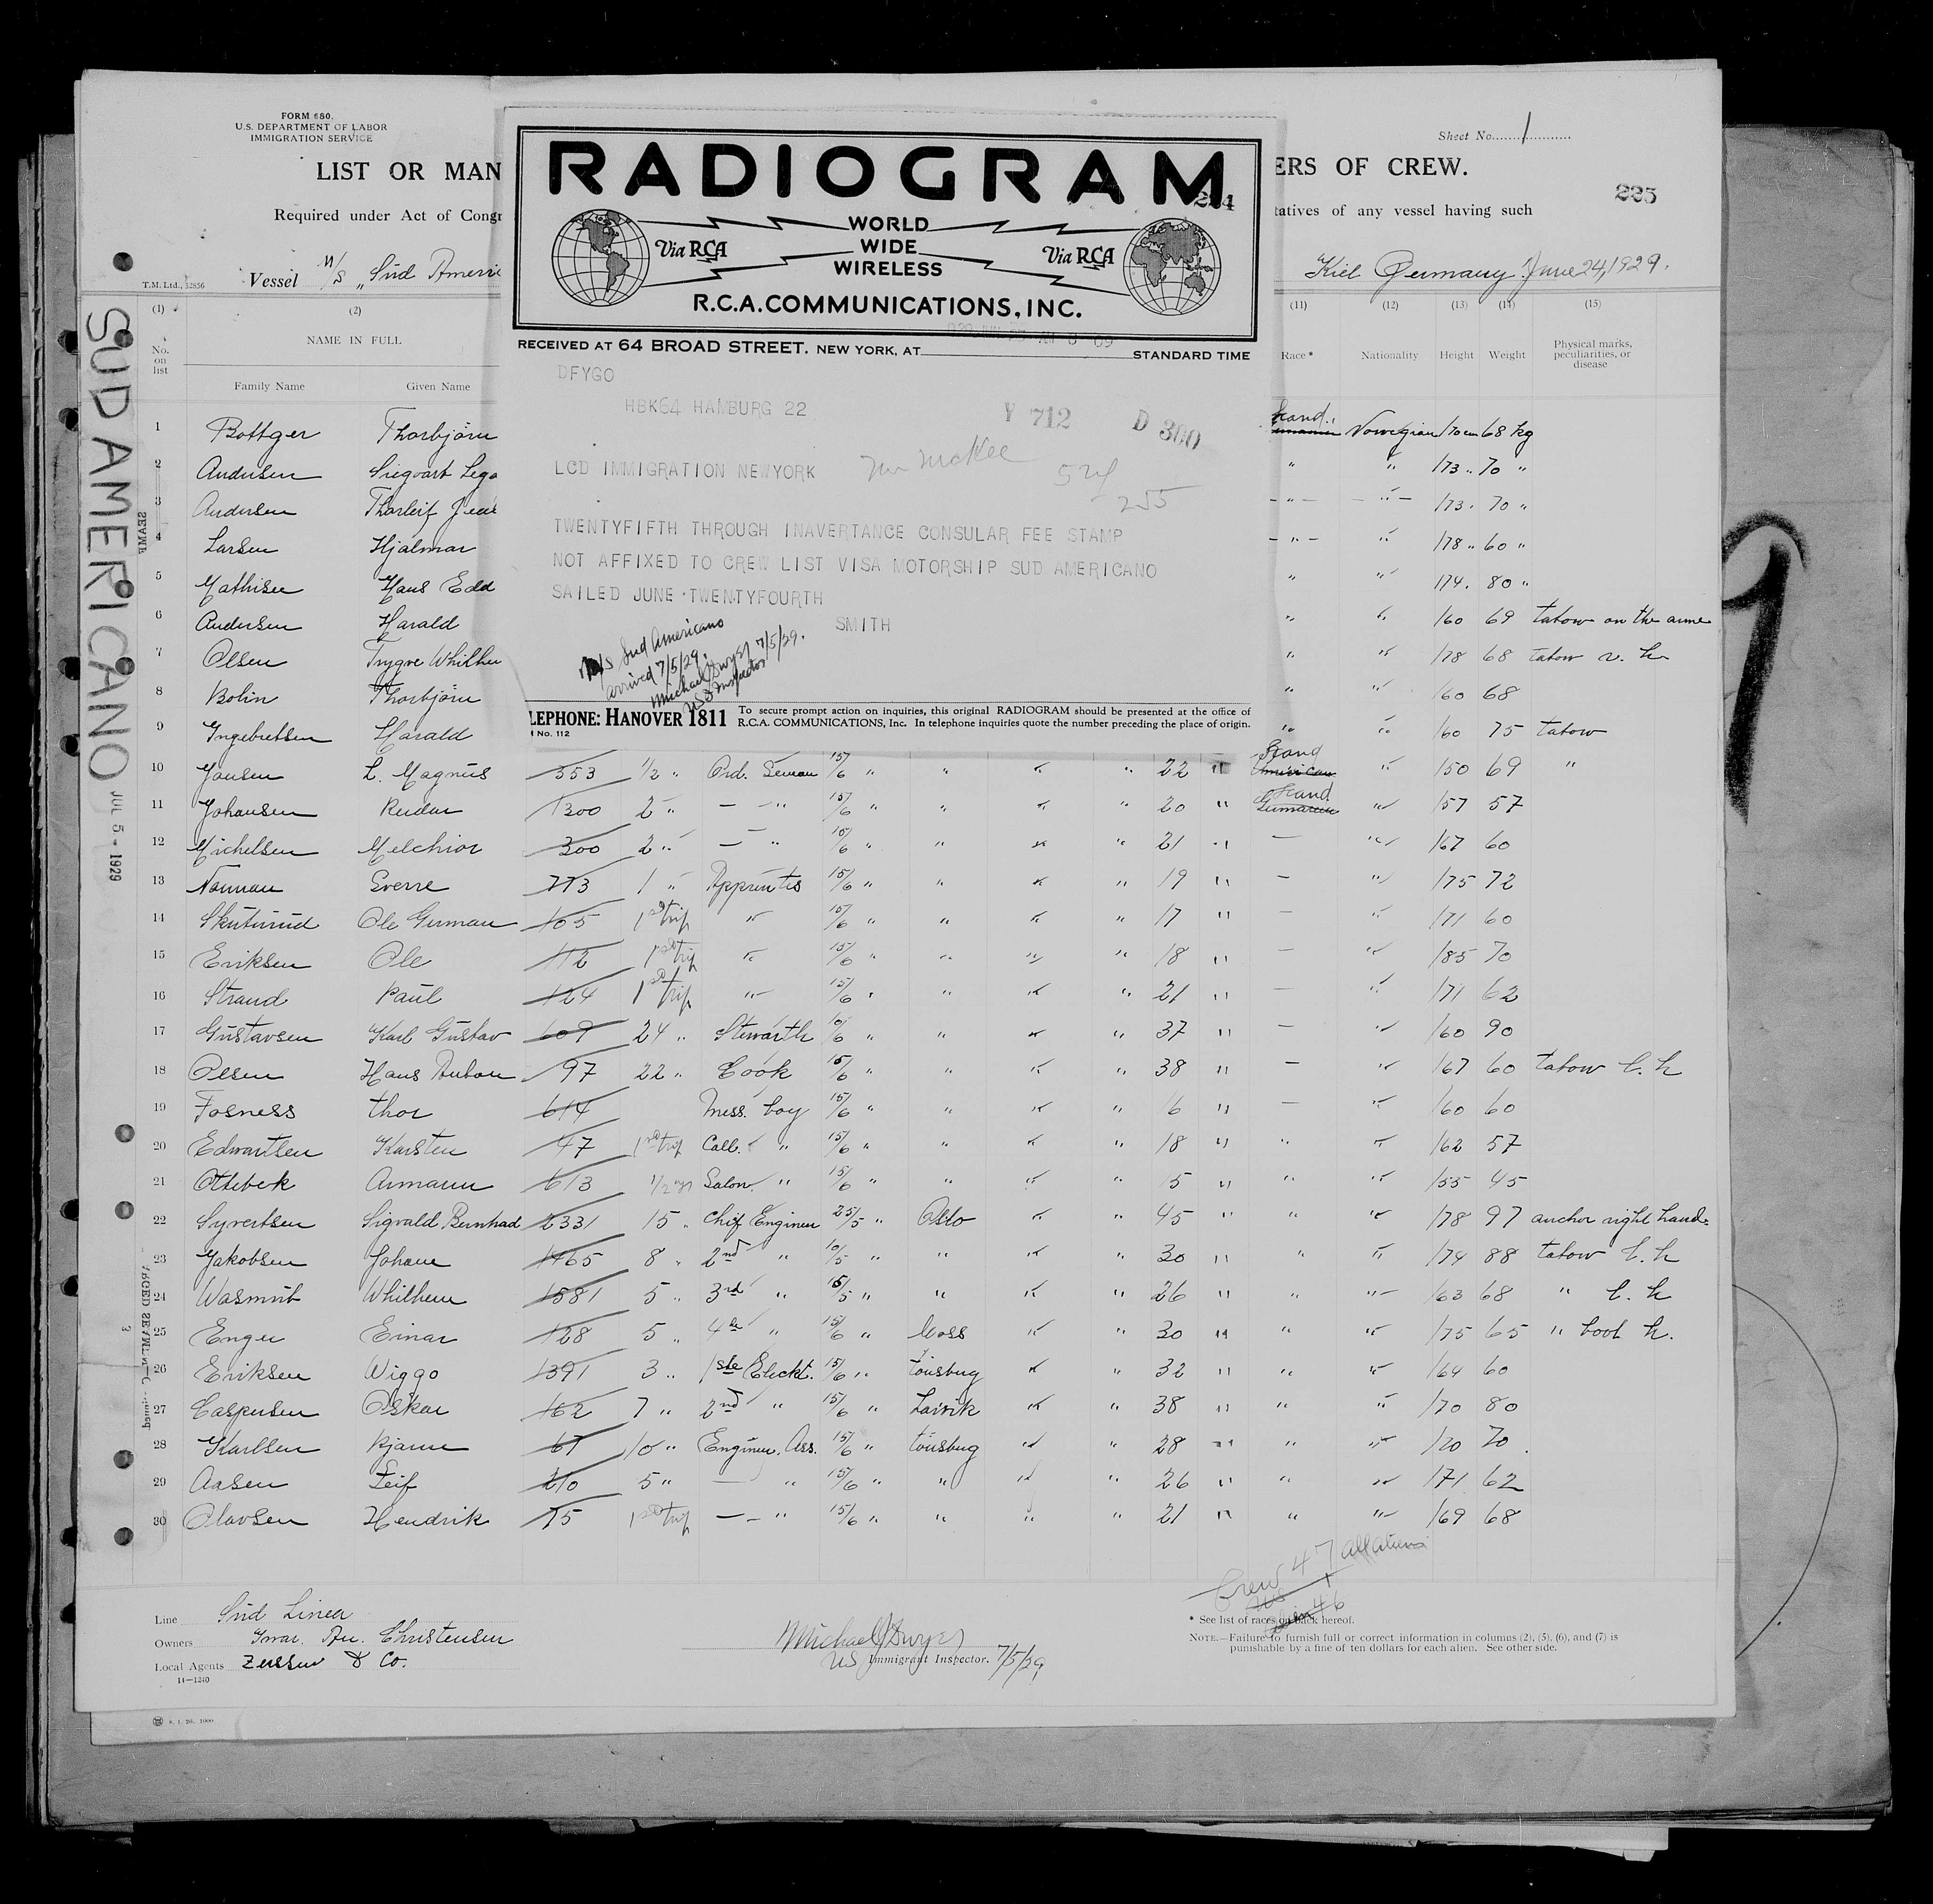 FORM 680.
U.S. DEPARTMENT OF LABOR
IMMIGRATION SERVICE
Sheet No. 1
LIST OR MAN
ERS OF CREW.
225
Required under Act of Congr
tatives of any vessel having such
T.M. Ltd., 32856
Vessel M/S „Süd Americ
Kiel Germany June 24, 1929.
RADIOGRAM
WORLD
WIDE
WIRELESS
Via RCA
Via RCA
R.C.A. COMMUNICATIONS, INC.
RECEIVED AT 64 BROAD STREET. NEW YORK, AT STANDARD TIME
DFYGO
HBK64 HAMBURG 22
Y 712 D 300
LCD IMMIGRATION NEWYORK
Mr McKee
255
TWENTYFIFTH THROUGH INAVERTANCE CONSULAR FEE STAMP
NOT AFFIXED TO CREW LIST VISA MOTORSHIP SUD AMERICANO
SAILED JUNE TWENTYFOURTH
SMITH
M/S Sud Americano
arrived 7/5/29.
Michael J Dwyer 7/5/29.
US Inspector
LEPHONE: HANOVER 1811
To secure prompt action on inquiries, this original RADIOGRAM should be presented at the office of
R.C.A. COMMUNICATIONS, Inc. In telephone inquiries quote the number preceding the place of origin.
No. 112
SUD AMERICANO JUL 5 - 1929
(1) (2) (11) (12) (13) (14) (15)
No. on list
NAME IN FULL
Family Name Given Name
Race * Nationality Height Weight Physical marks, peculiarities, or disease
1 Bottger Thorbjörn Scand. Norwegian 170 cm 68 kg
2 Andersen " " 173 " 70 "
3 Andersen Thorleif - " - - " - 173 . 70 "
4 Larsen Hjalmar - " - " 178 " 60 "
5 Mathisen Hans Edd " " 174 . 80 "
6 Andersen Harald " " 160 69 tatow on the arme
7 Olsen Trygve Whilhe " " 178 68 tatow r. h
8 Bolin Thorbjörn " " 160 68
9 Ingebretsen Harald " " 160 75 tatow
10 Jansen L. Magnus 353 1/2 " Ord. Seman 15/6 " " " " 22 " Scand " 150 69 "
11 Johansen Reidar 1300 2 " — " 15/6 " " " " 20 " Scand Germanen " 157 57
12 Michelsen Melchior 300 2 " — " 15/6 " " " " 21 " — " 167 60
13 Norman Sverre 773 1 " Apprintis 15/6 " " " " 19 " — " 175 72
14 Skuterud Ole German 105 1st trip " 15/6 " " " " 17 " — " 171 60
15 Eriksen Ole 112 1st trip " 15/6 " " " " 18 " — " 185 70
16 Strand Paul 124 1st trip " 15/6 " " " " 21 " — " 171 62
17 Gustavsen Karl Gustav 609 24 " Stewarth 10/6 " " " " 37 " — " 160 90
18 Olsen Hans Anton 97 22 " Cook 15/6 " " " " 38 " — " 167 60 tatow l. h
19 Fosness Thor 614 Mess. boy 15/6 " " " " 16 " — " 160 60
20 Edwartsen Karsten 47 1st trip Call. " 15/6 " " " " 18 " " " 162 57
21 Ottebek Armann 613 1/2 yr Salon. " 15/6 " " " " 15 " " " 155 45
22 Syvertsen Sigvald Bernhad 2331 15 " Chif Enginer 25/5 " Oslo " " 45 " " " 178 97 anchor right hand
23 Jakobsen Johann 1465 8 " 2nd " 10/5 " " " " 30 " " " 174 88 tatow l. h
24 Whilhem 1581 5 " 3rd " 15/5 " " " " 26 " " " 163 68 " l. h
25 Enger Einar 128 5 " 4th " 15/6 " Moss " " 30 " " " 175 65 " h.
26 Eriksen Wiggo 1391 3 " 1ste Eleckt. 15/6 " Tönsberg " " 32 " " " 164 60
27 Caspersen Oskar 162 7 " 2nd " 15/6 " Larvik " " 38 " " " 170 80
28 Karlsen Bjarne 67 10 " Enginer. Ass. 15/6 " Tönsberg " " 28 " " " 170 70
29 Aasen Leif 210 5 " — " 15/6 " " " " 26 " " " 171 62
30 Olavsen Hendrik 75 1st trip — " 15/6 " " " " 21 " " " 169 68
Crew 47 all aliens
46
Line Süd Linea
Owners Ivar An. Christensen
Local Agents Zerssen & Co.
14—1240
Michael J Dwyer
US Immigrant Inspector. 7/5/29
* See list of races on back hereof.
NOTE.—Failure to furnish full or correct information in columns (2), (5), (6), and (7) is
punishable by a fine of ten dollars for each alien. See other side.